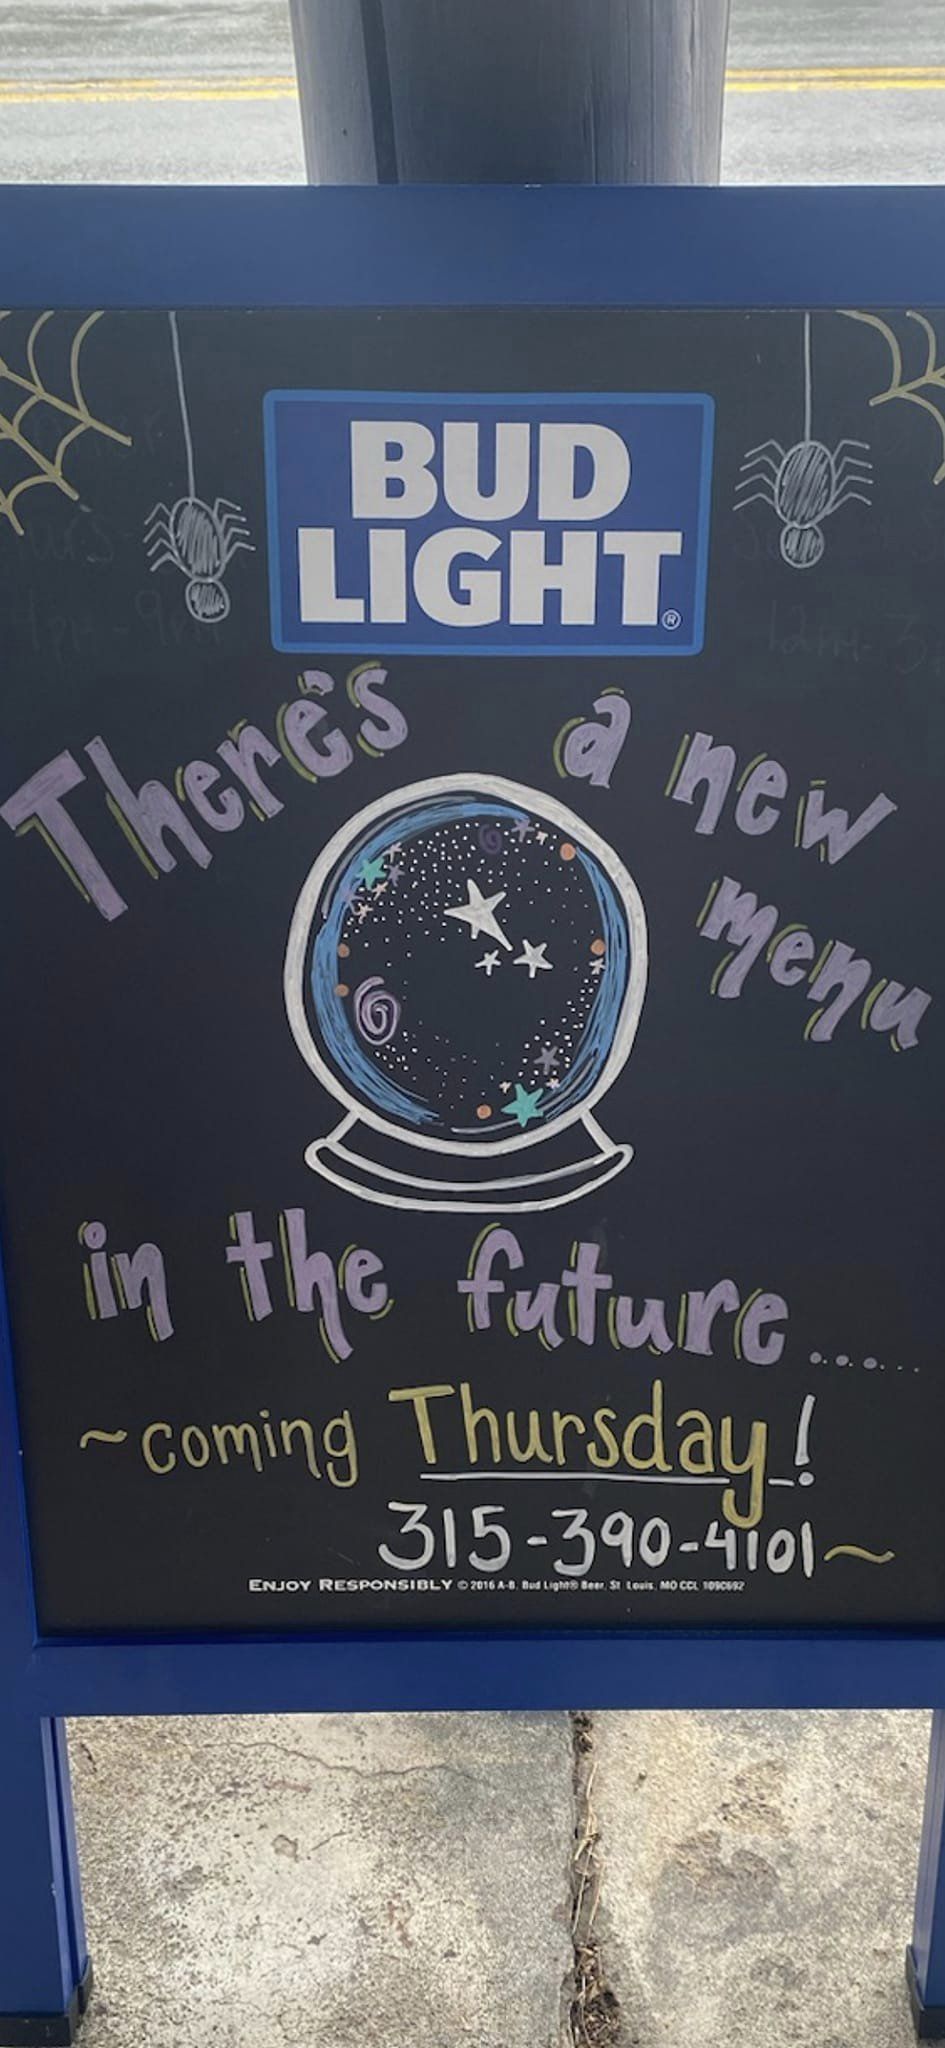 BUD
LIGHT®
There's a new
menu
in the future......
~coming Thursday!
315-390-4101~
ENJOY RESPONSIBLY © 2016 A-B, Bud Light® Beer, St. Louis, MO CCL 109C692